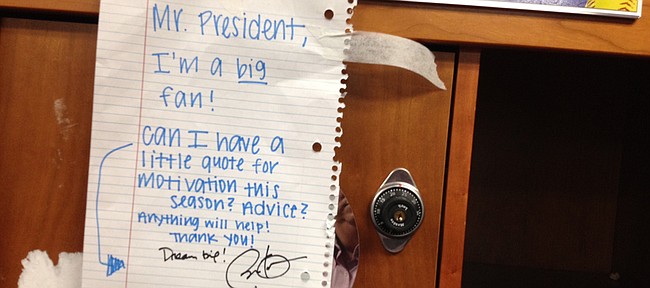 Mr. President,
I'm a big
fan!
Can I have a
little quote for
motivation this
season? Advice?
Anything will help!
Thank you!
Dream big!